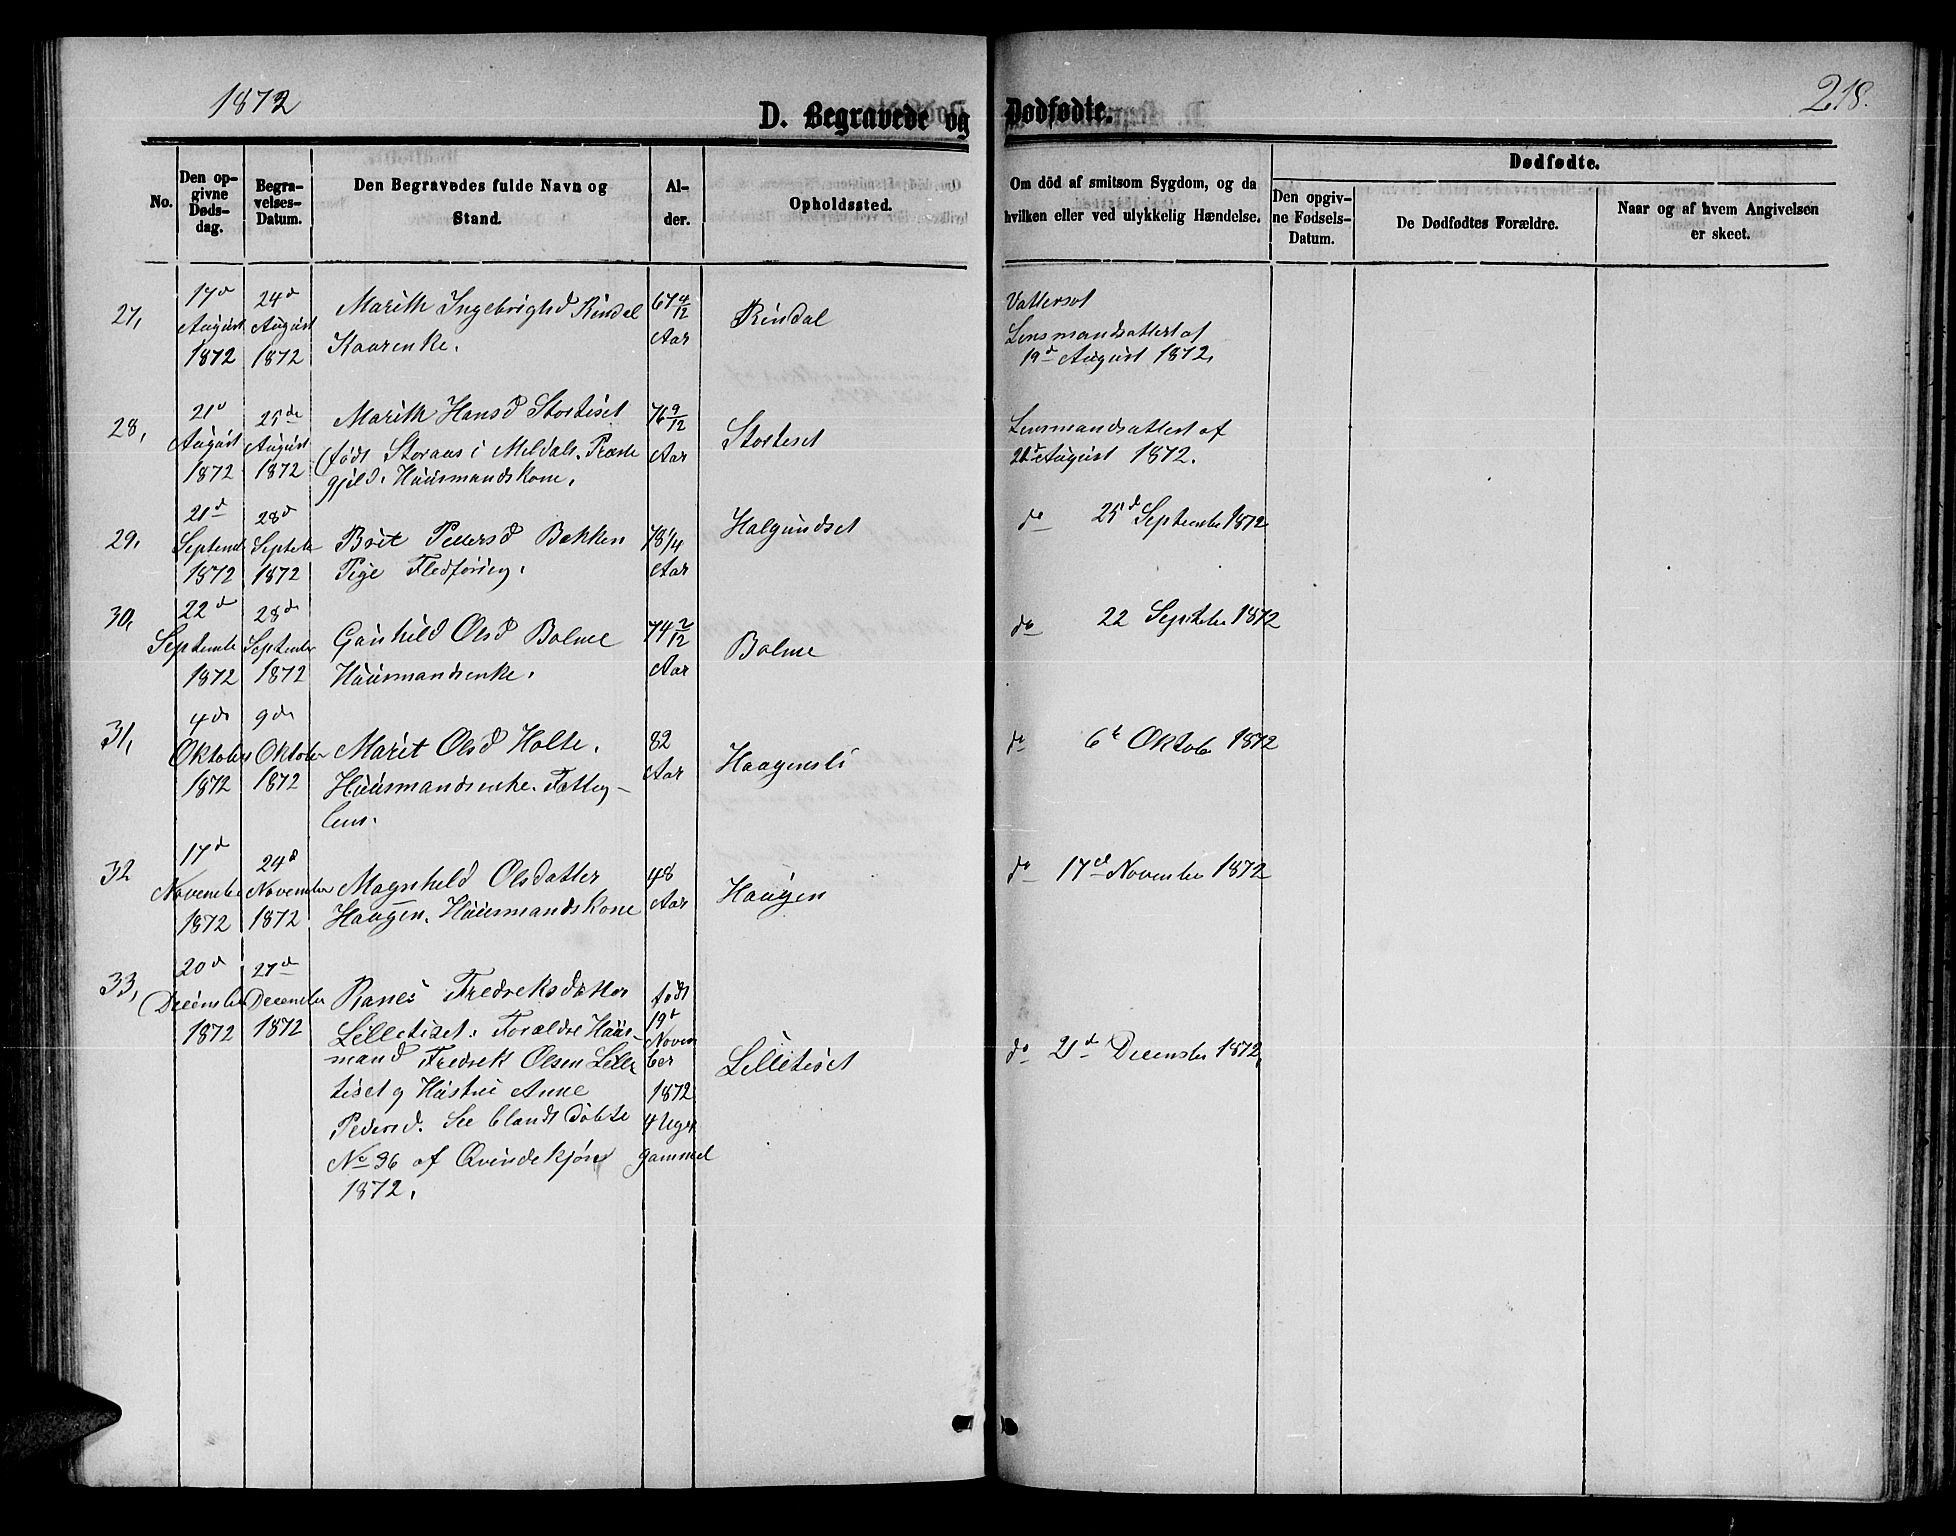 1872
218.
D. Begravede og Dødfødte.
No.
Den op-
givne
Døds-
dag.
Begra-
velses-
Datum.
Den Begravedes fulde Navn og
Stand.
Al-
der.
Opholdssted.
Om död af smitsom Sygdom, og da
hvilken eller ved ulykkelig Hændelse.
Dødfødte.
Den opgiv-
ne Fodsels-
Datum.
De Dødfødtes Forældre.
Naar og af hvem Angivelsen
er skeet.
27,
17d
August
1872
24d
August
1872
Marith Ingebrigtsd Rindal
Kaarenke.
67 4/12
Aar
Rindal
Vattersot
Lensmandsattest af
19d August 1872.
28,
21d
August
1872
25de
August
1872
Marith Hansd Stortiset
(født Storaas i Meldals Præste
gjeld. Huusmandskone.
76 9/12
Aar
Stortiset
Lensmandsattest af
21d August 1872.
29,
21d
Septemb
1872
28d
Septebr
1872
Brit Pedersd Bakken
Pige Fledføring.
78 1/4
Aar
Halgundset
do 25d September 1872
30,
22d
Septembe
1872
28de
September
1872
Gunhild Olsd Bolme
Huusmandsenke.
74 2/12
Aar
Bolme
do 22 Septeber 1872
31,
4de
Oktober
1872
9de
Oktober
1872
Marit Olsd Holte.
Huusmandsenke. Fattig-
lem.
82
Aar
Haagensli
do 6te Oktob 1872
32
17d
November
1872
24d
November
1872
Magnhild Olsdatter
Haugen. Huusmandskone
48
Aar
Haugen
do 17d November 1872
33,
20d
December
1872
27de
December
1872
Ranei Fredreksdatter
Lilletiset. Forældre Huus-
mand Fredrek Olsen Lille
tiset og Hustru Anne
Pedersd. See blandt Døbte
No 36 af Qvindekjøn
1872.
født
19d
Novem
ber
1872
4 Uger
gammel
Lilletiset
do 21d December 1872